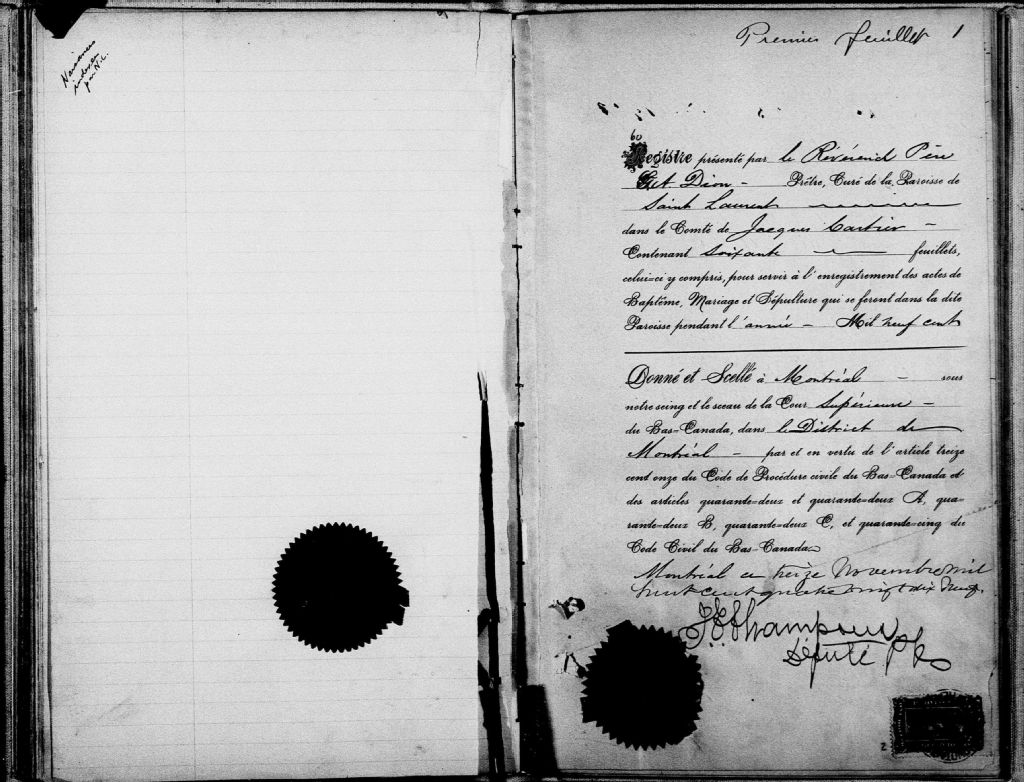 Naissances
indexées
par N.L.
Premier feuillet 1
60
Registre présenté par le Révérend Père
Dion - Prêtre, Curé de la Paroisse de
Saint Laurent
dans le Comté de Jacques Cartier -
Contenant Soixante - feuillets,
celui-ci y compris, pour servir à l'enregistrement des actes de
Baptême, Mariage et Sépulture qui se feront dans la dite
Paroisse pendant l'année - Mil neuf cent
Donné et Scellé à Montréal - sous
notre seing et le sceau de la Cour Supérieure -
du Bas-Canada, dans le District de
Montréal - par et en vertu de l'article treize
cent onze du Code de Procédure civile du Bas-Canada et
des articles quarante-deux et quarante-deux A, qua-
rante-deux B, quarante-deux C, et quarante-cinq du
Code Civil du Bas-Canada
Montréal ce treize Novembre mil
huit cent quatre vingt dix neuf.
Député P
2